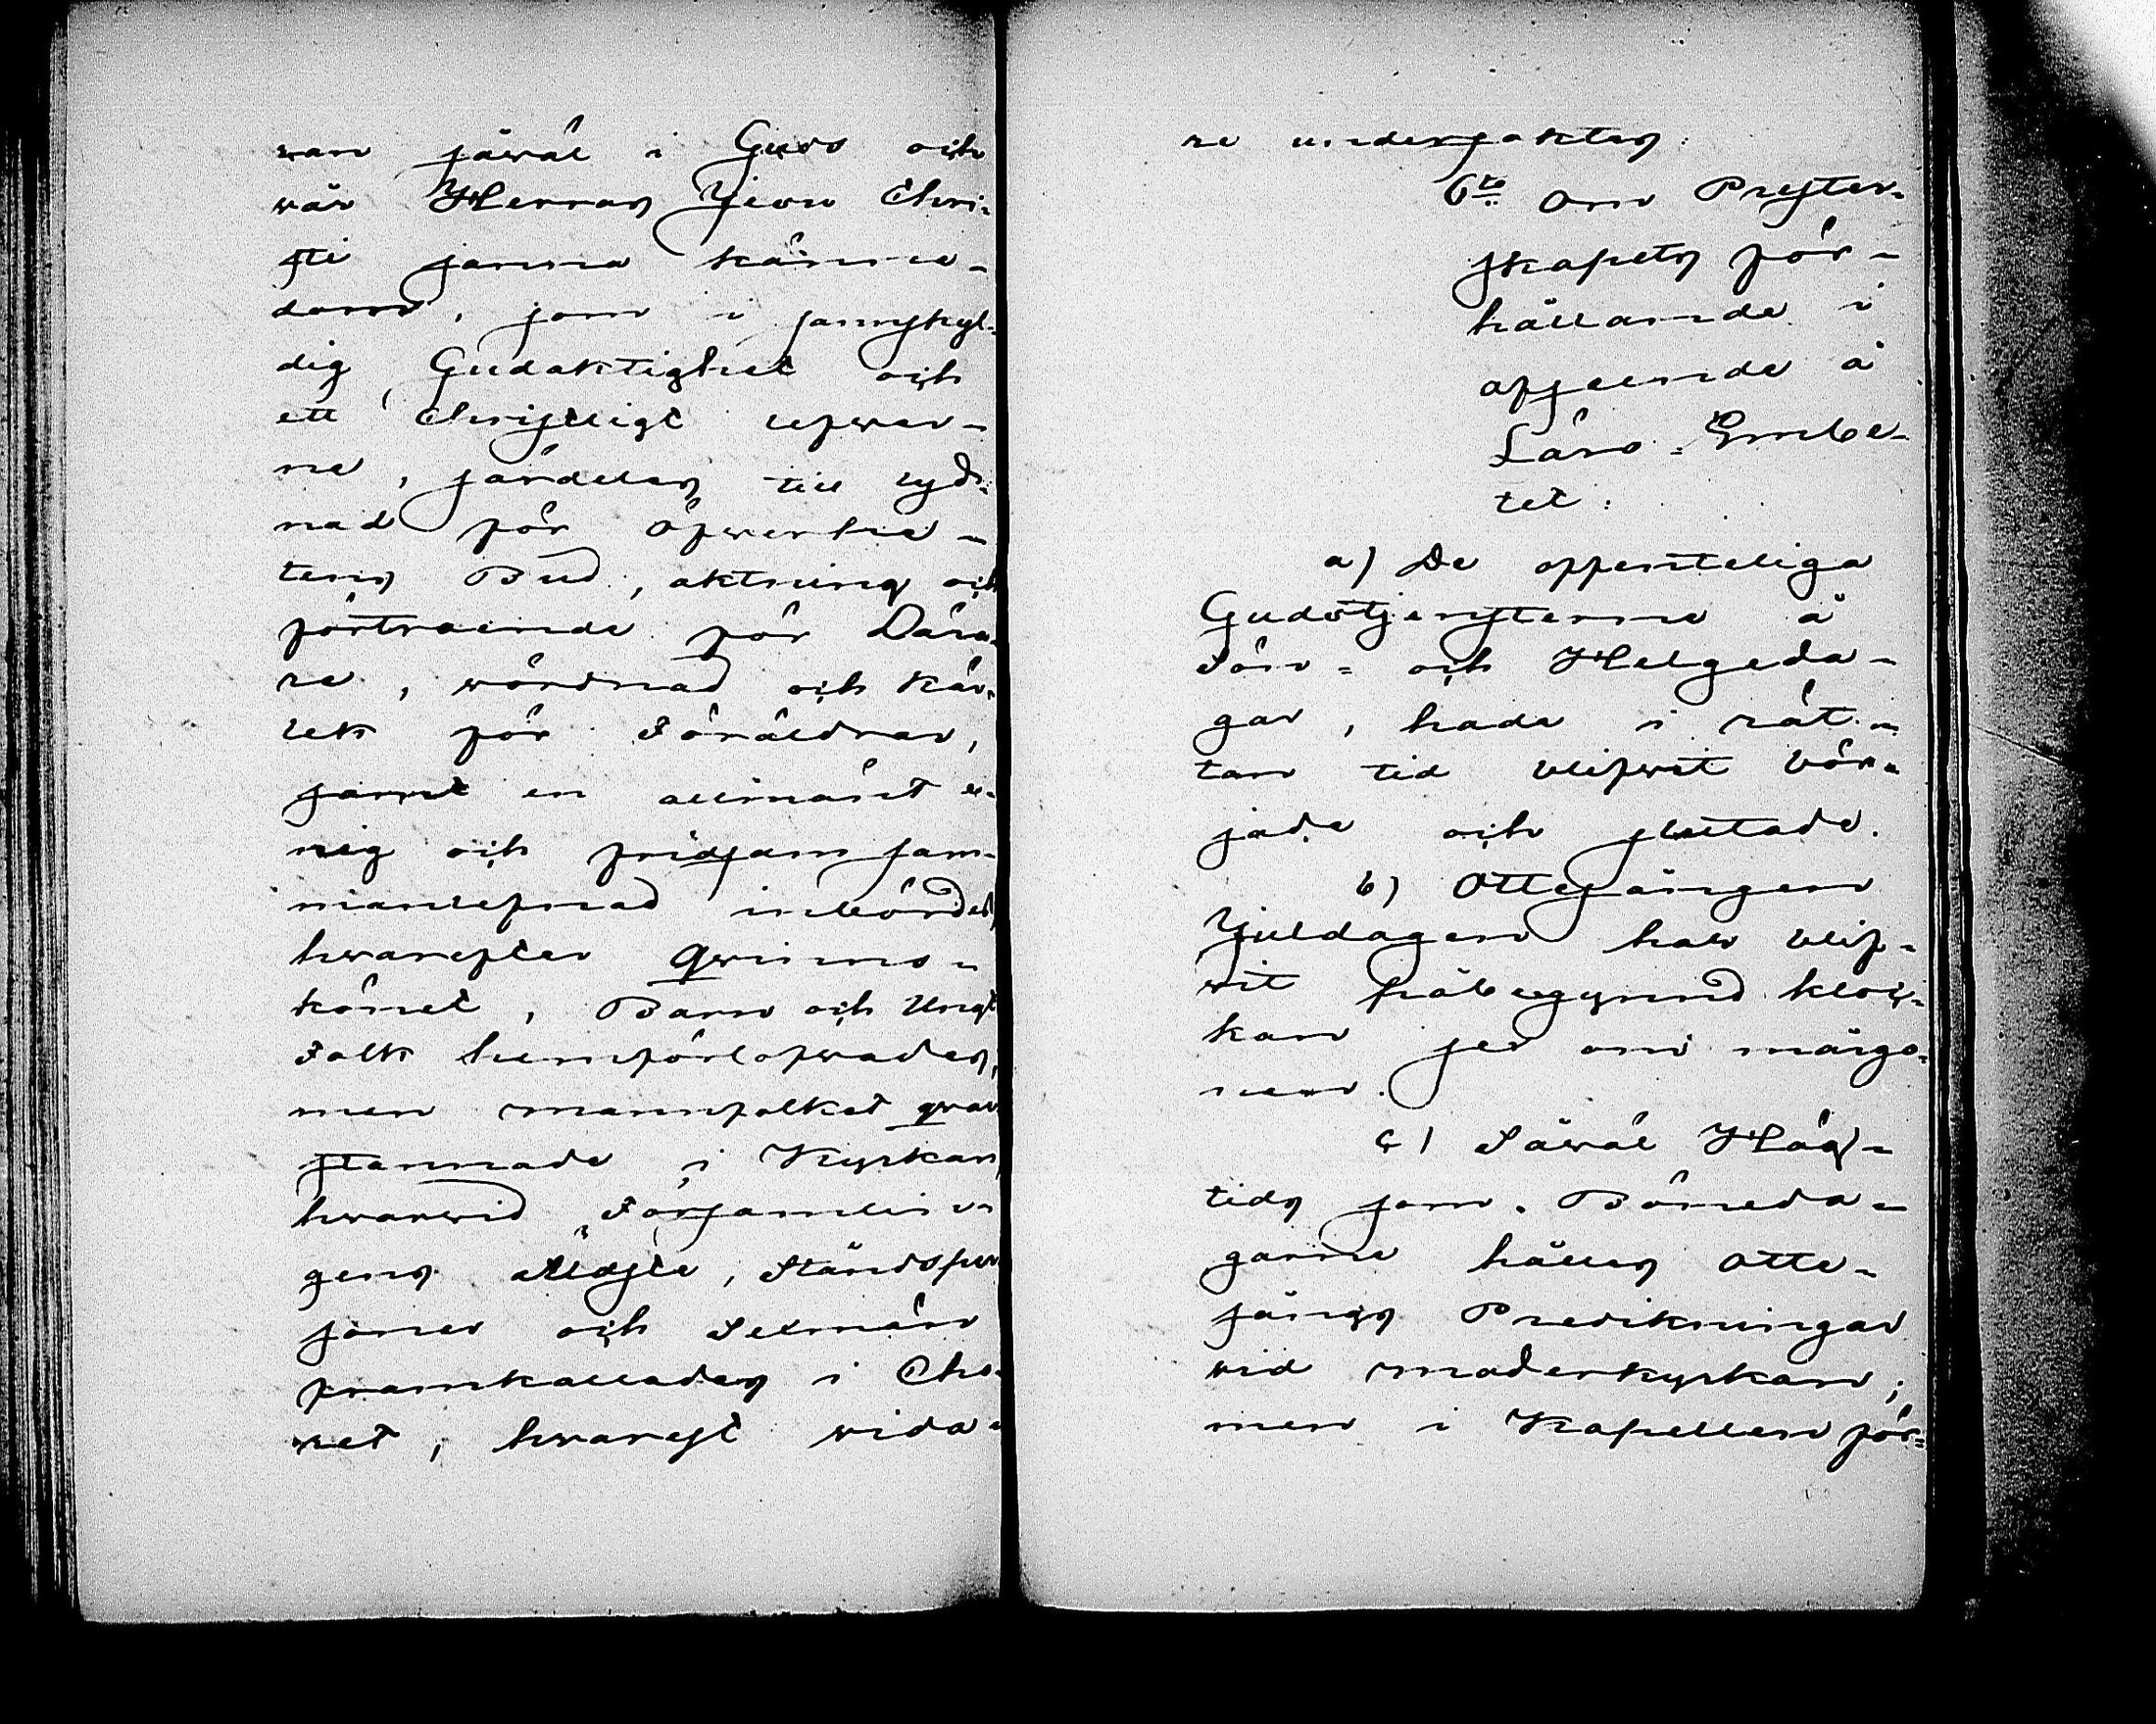 ran såwäl i Guds och
wår Herras Jesu Chri-
sti sanna känne-
dom, som i samskyl-
dig Gudaktighet och
ett Christligt upwer-
ne, särdeles till lyd-
nad för Öfwerhe-
tens Bud, aktning och
förtroende för Lära-
re, wördnad och kär-
lek för Föräldrar,
samt en allmänt e-
nig och fridsam sam-
manlefnad inbördes,
hwarefter Qwinno-
könet, Barn och Ungt
Folk hemförlofwades,
men mannfolket qwar
stannade i Kyrkan,
hwarwid Församlin-
gens Äldste, Ståndsper
soner och Sexmän
framkallades i Cho-
ret, hwarest wida-
re undersöktes:
6te Om Prester-
skapets för-
hållande i
afseende å
Läro-Embe-
tet:
a) De offenteliga
Gudstjensterne å
Sön- och Helgeda-
gar, hade i rät-
tan tid blifwit bör-
jade och slutade.
b) Ottesången
Juldagen har blif-
wit påbegynnd kloc-
kan sex om morgo-
nen.
c) Såwäl Hög-
tids som Böneda-
garne hålles Otte-
sångs Predikningar
wid moderkyrkan;
men i Kapellen för-